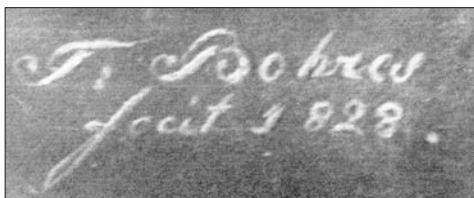 T. Bohres
fecit 1828.